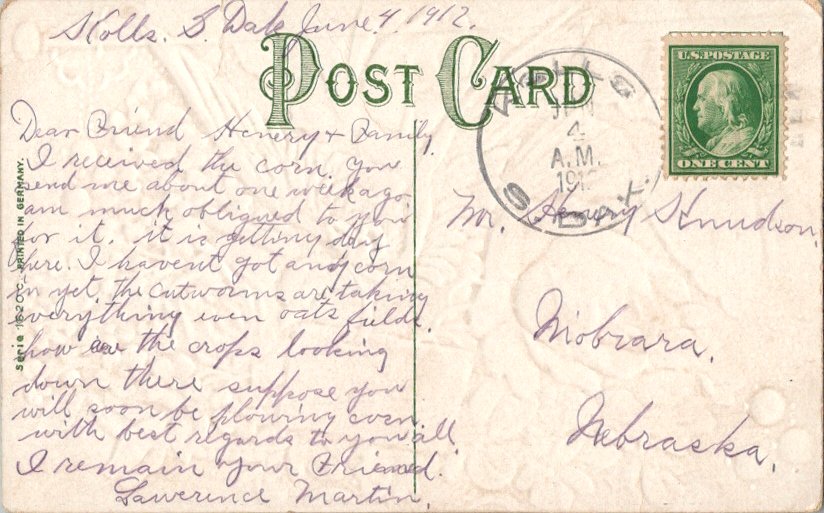 Skolls. S. Dak June 4, 1912.
POST CARD
U.S. POSTAGE
ONE CENT
4
A.M.
1912
S. Dak.
Dear Friend Henery & Family.
I received the corn. you
send me about one week ago
am much obligued to you
for it. it is getting day
here. I havent got andy corn
in yet. the cutworms are taking
everything even oats fields.
how are the crops looking
down there suppose you
will soon be plowing corn
with best regards to you all
I remain your Friend.
Lawerence Martin.
Mr. Henery Knudson.
Niobrara.
Nebraska.
Serie 1620 C. PRINTED IN GERMANY.